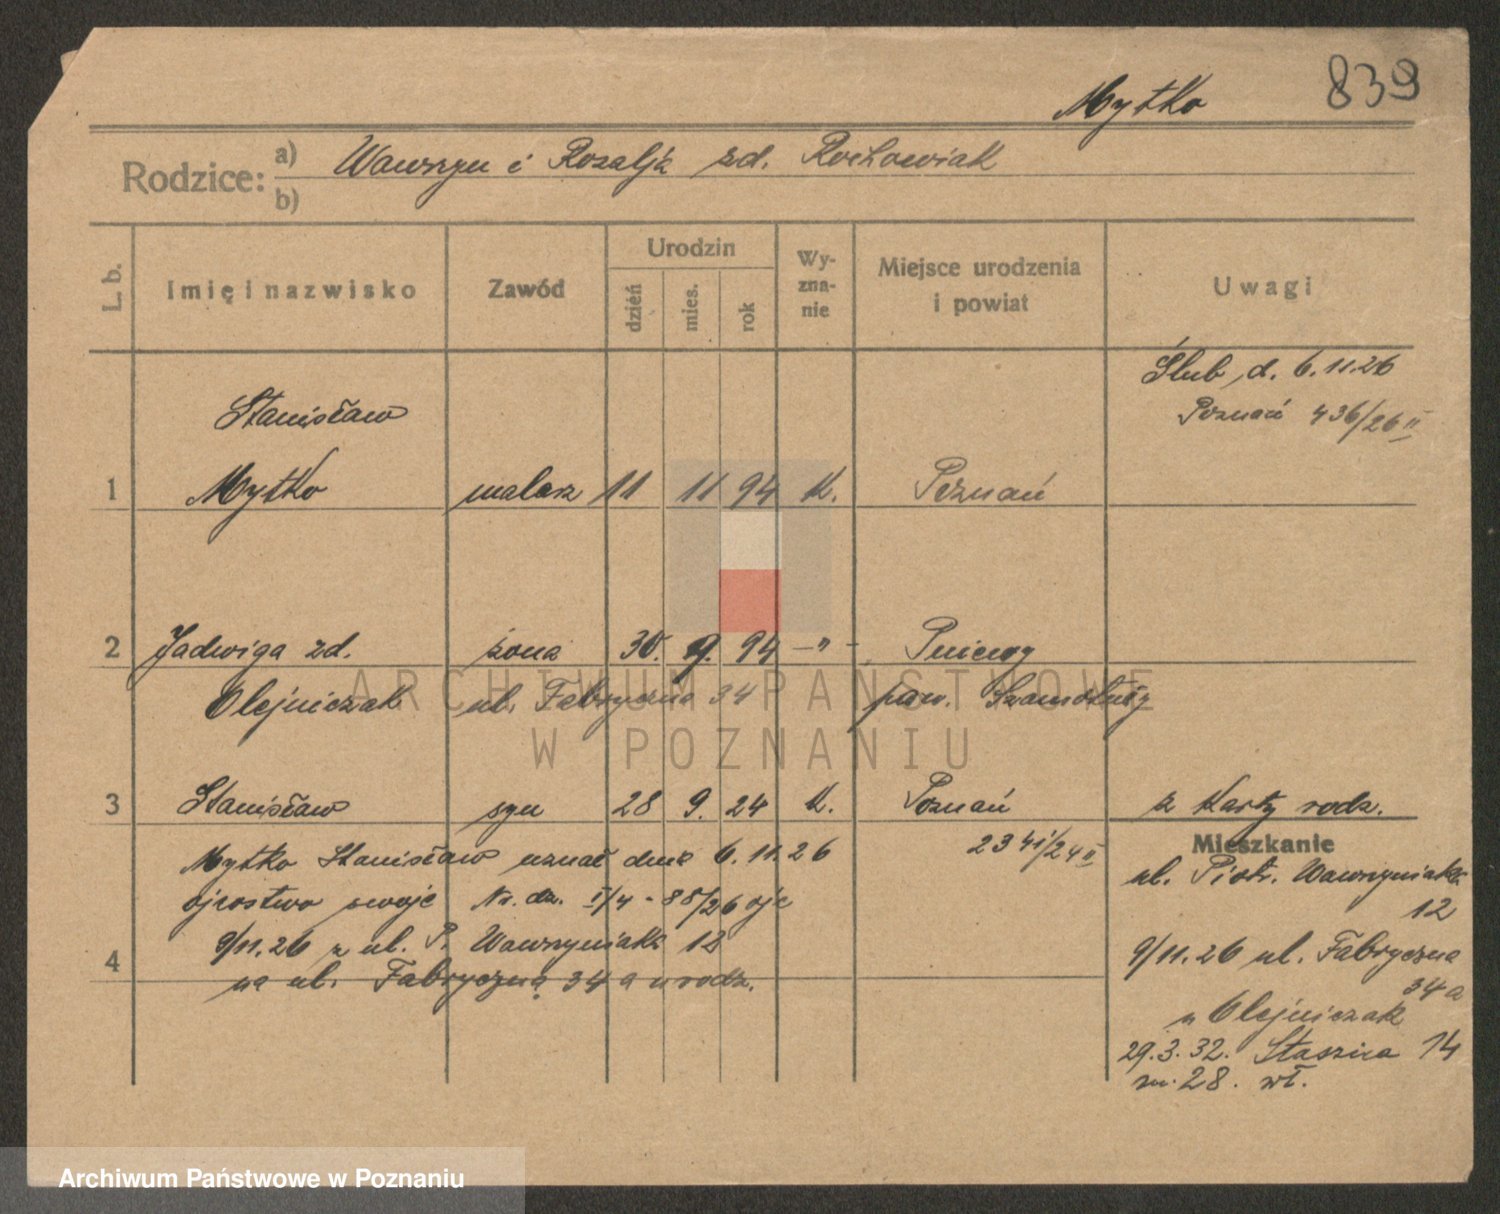 839
Mytko
Rodzice: a) Wawrzyn i Rozalja zd. Rochowiak
b)
L. b. Imię i nazwisko Zawód Urodzin dzień mies. rok Wyznanie Miejsce urodzenia i powiat Uwagi
Ślub d. 6.11.26
Poznań 436/26 II
Stanisław
1 Mytko malarz 11 11 94 K. Poznań
2 Jadwiga zd. żona 30. 9. 94 -"- Pniewy
Olejniczak ul. Fabryczna 34 pow. Szamotuły
ARCHIWUM PAŃSTWOWE
W POZNANIU
3 Stanisław syn 28 9. 24 K. Poznań z Karty rodz.
2341/24 II
Mytko Stanisław uznał dnia 6.11.26
ojcostwo swoje Nr. dz. I/4 - 88/26
9/11.26 z ul. P. Wawrzyniaka 12
4 na ul. Fabryczną 34 a u rodz.
Mieszkanie
ul. Piotr. Wawrzyniaka
12
9/11.26 ul. Fabryczna
34 a
u Olejniczak
29.3.32. Staszica 14
m. 28. wł.
Archiwum Państwowe w Poznaniu